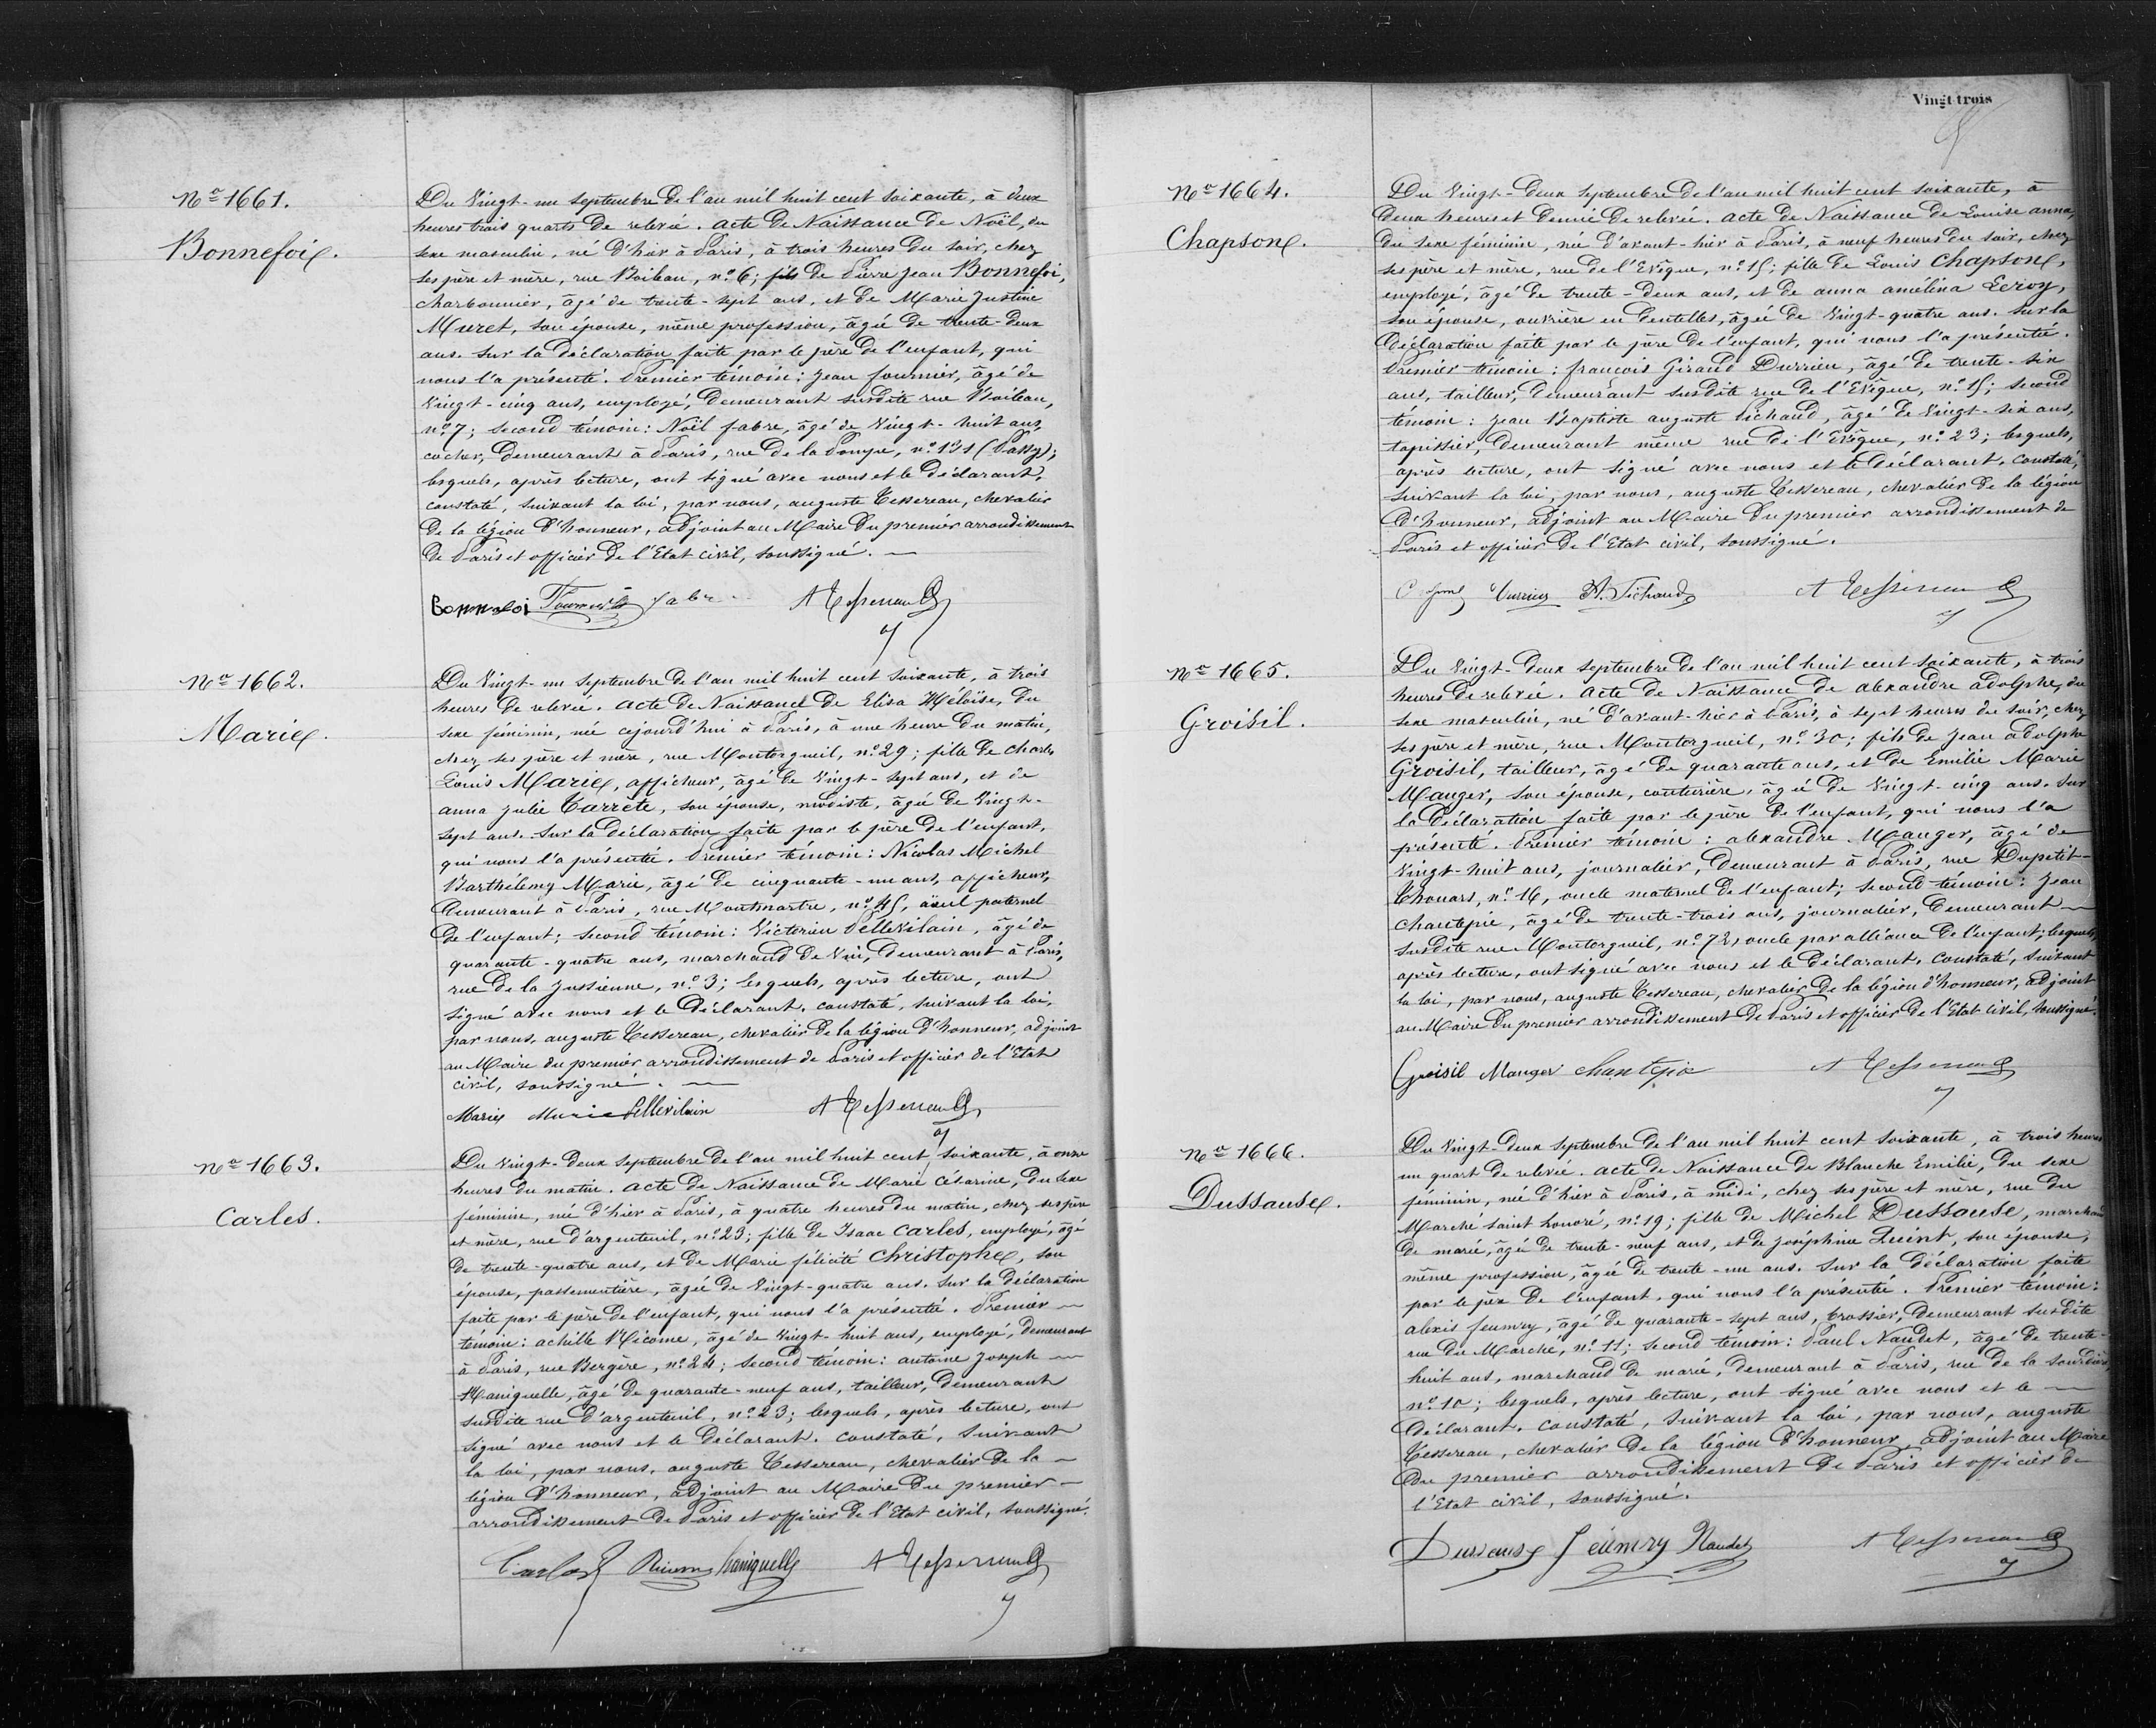 Nº 1661.
Bonnefoi.
Du vingt-un septembre de l'an mil huit cent soixante, à deux
heures trois quarts de relevée. Acte de Naissance de Noël, du
sexe masculin, né d'hier à Paris, à trois heures du soir, chez
ses père et mère, rue Boileau, nº 6; fils de Pierre Jean Bonnefoi,
charbonnier, âgé de trente-sept ans, et de Marie Justine
Muret, son épouse, même profession, âgée de trente-deux
ans. Sur la déclaration faite par le père de l'enfant, qui
nous l'a présenté. Premier témoin: Jean Fournier, âgé de
vingt-cinq ans, employé, demeurant susdite rue Boileau,
nº 7; second témoin: Noël Fabre, âgé de vingt-huit ans,
cocher, demeurant à Paris, rue de la Pompe, nº 131 (Passy);
lesquels, après lecture, ont signé avec nous et le déclarant.
constaté, suivant la loi, par nous, auguste Tessereau, chevalier
de la légion d'honneur, adjoint au Maire du premier arrondissement
de Paris et officier de l'Etat civil, soussigné.
Bonnefoi Fournier fabre A Tessereau
Nº 1662.
Marie.
Du vingt-un septembre de l'an mil huit cent soixante, à trois
heures de relevée. Acte de Naissance de Elisa Héloïse, du
sexe féminin, née cejourd'hui à Paris, à une heure du matin,
chez ses père et mère, rue Montorgueil, nº 29; fille de Charles
Louis Marie, afficheur, âgé de vingt-sept ans, et de
anna Julie Carrète, son épouse, modiste, âgée de vingt-
sept ans. Sur la déclaration faite par le père de l'enfant,
qui nous l'a présentée. Premier témoin: Nicolas Michel
Barthélemy Marie, âgé de cinquante-un ans, afficheur,
demeurant à Paris, rue Montmartre, nº 45, aïeul paternel
de l'enfant; second témoin: Victorien Pellevilain, âgé de
quarante-quatre ans, marchand de vin, demeurant à Paris,
rue de la Jussienne, nº 3; lesquels, après lecture, ont
signé avec nous et le déclarant. constaté, suivant la loi,
par nous, auguste Tessereau, chevalier de la légion d'honneur, adjoint
au Maire du premier arrondissement de Paris et officier de l'Etat
civil, soussigné.
Marie Marie Pellevilain A Tessereau
nº 1663.
Carles.
Du vingt-deux septembre de l'an mil huit cent soixante, à onze
heures du matin. Acte de Naissance de Marie Césarine, du sexe
féminin, née d'hier à Paris, à quatre heures du matin, chez ses père
et mère, rue d'argenteuil, nº 23; fille de Isaac Carles, employé, âgé
de trente-quatre ans, et de Marie félicité Christophe, son
épouse, passementière, âgée de vingt-quatre ans. Sur la déclaration
faite par le père de l'enfant, qui nous l'a présentée. Premier
témoin: achille Ricome, âgé de vingt-huit ans, employé, demeurant
à Paris, rue Bergère, nº 24; second témoin: antoine Joseph
Haniquelle, âgé de quarante-neuf ans, tailleur, demeurant
susdite rue d'argenteuil, nº 23; lesquels, après lecture, ont
signé avec nous et le déclarant. constaté, suivant
la loi, par nous, auguste Tessereau, chevalier de la
légion d'honneur, adjoint au Maire du premier
arrondissement de Paris et officier de l'Etat civil, soussigné.
Carles haniquelle A Tessereau
Vingt-trois
Nº 1664.
Chapson.
Du vingt-deux septembre de l'an mil huit cent soixante, à
deux heures et demie de relevée. Acte de Naissance de Louise anna,
du sexe féminin, née d'avant-hier à Paris, à neuf heures du soir, chez
ses père et mère, rue de l'Evêque, nº 15; fille de Louis Chapson,
employé, âgé de trente-deux ans, et de anna amélina Leroy,
son épouse, ouvrière en dentelles, âgée de vingt-quatre ans. Sur la
déclaration faite par le père de l'enfant, qui nous l'a présentée.
Premier témoin: françois Giraud Durrieu, âgé de trente-six
ans, tailleur, demeurant susdite rue de l'Evêque, nº 15; second
témoin: Jean Baptiste auguste Pichaud, âgé de vingt-six ans,
tapissier, demeurant même rue de l'Evêque, nº 23; lesquels,
après lecture, ont signé avec nous et le déclarant. constaté,
suivant la loi, par nous, auguste Tessereau, chevalier de la légion
d'honneur, adjoint au Maire du premier arrondissement de
Paris et officier de l'Etat civil, soussigné.
Durrieu A. Pichaud A Tessereau
Nº 1665.
Groisil.
Du vingt-deux septembre de l'an mil huit cent soixante, à trois
heures de relevée. Acte de Naissance de alexandre adolphe, du
sexe masculin, né d'avant-hier à Paris, à sept heures du soir, chez
ses père et mère, rue Montorgueil, nº 30; fils de Jean adolphe
Groisil, tailleur, âgé de quarante ans, et de Emilie Marie
Mauger, son épouse, couturière, âgée de vingt-cinq ans. Sur
la déclaration faite par le père de l'enfant, qui nous l'a
présenté. Premier témoin: alexandre Mauger, âgé de
vingt-huit ans, journalier, demeurant à Paris, rue Dupetit-
Thouars, nº 16, oncle maternel de l'enfant; second témoin: Jean
chantepie, âgé de trente-trois ans, journalier, demeurant
susdite rue Montorgueil, nº 72, oncle par alliance de l'enfant; lesquels,
après lecture, ont signé avec nous et le déclarant. Constaté, suivant
la loi, par nous, auguste Tessereau, chevalier de la légion d'honneur, adjoint
au Maire du premier arrondissement de Paris et officier de l'Etat civil, soussigné.
Groisil Mauger Chantepie A Tessereau
Nº 1666.
Dussause.
Du vingt-deux septembre de l'an mil huit cent soixante, à trois heures
un quart de relevée. Acte de Naissance de Blanche Emilie, du sexe
féminin, née d'hier à Paris, à midi, chez ses père et mère, rue du
Marché saint honoré, nº 19; fille de Michel Dussause, marchand
de marée, âgé de trente-neuf ans, et de Joséphine Quint, son épouse,
même profession, âgée de trente-un ans. Sur la déclaration faite
par le père de l'enfant, qui nous l'a présenté. Premier témoin:
alexis feumry, âgé de quarante-sept ans, brossier, demeurant susdite
rue du Marché, nº 11; second témoin: Paul Naudet, âgé de trente-
huit ans, marchand de marée, demeurant à Paris, rue de la Sourdière
nº 10; lesquels, après lecture, ont signé avec nous et le
déclarant. constaté, suivant la loi, par nous, auguste
Tessereau, chevalier de la légion d'honneur, adjoint au Maire
du premier arrondissement de Paris et officier de
l'Etat civil, soussigné.
Dussause feumry Naudet A Tessereau